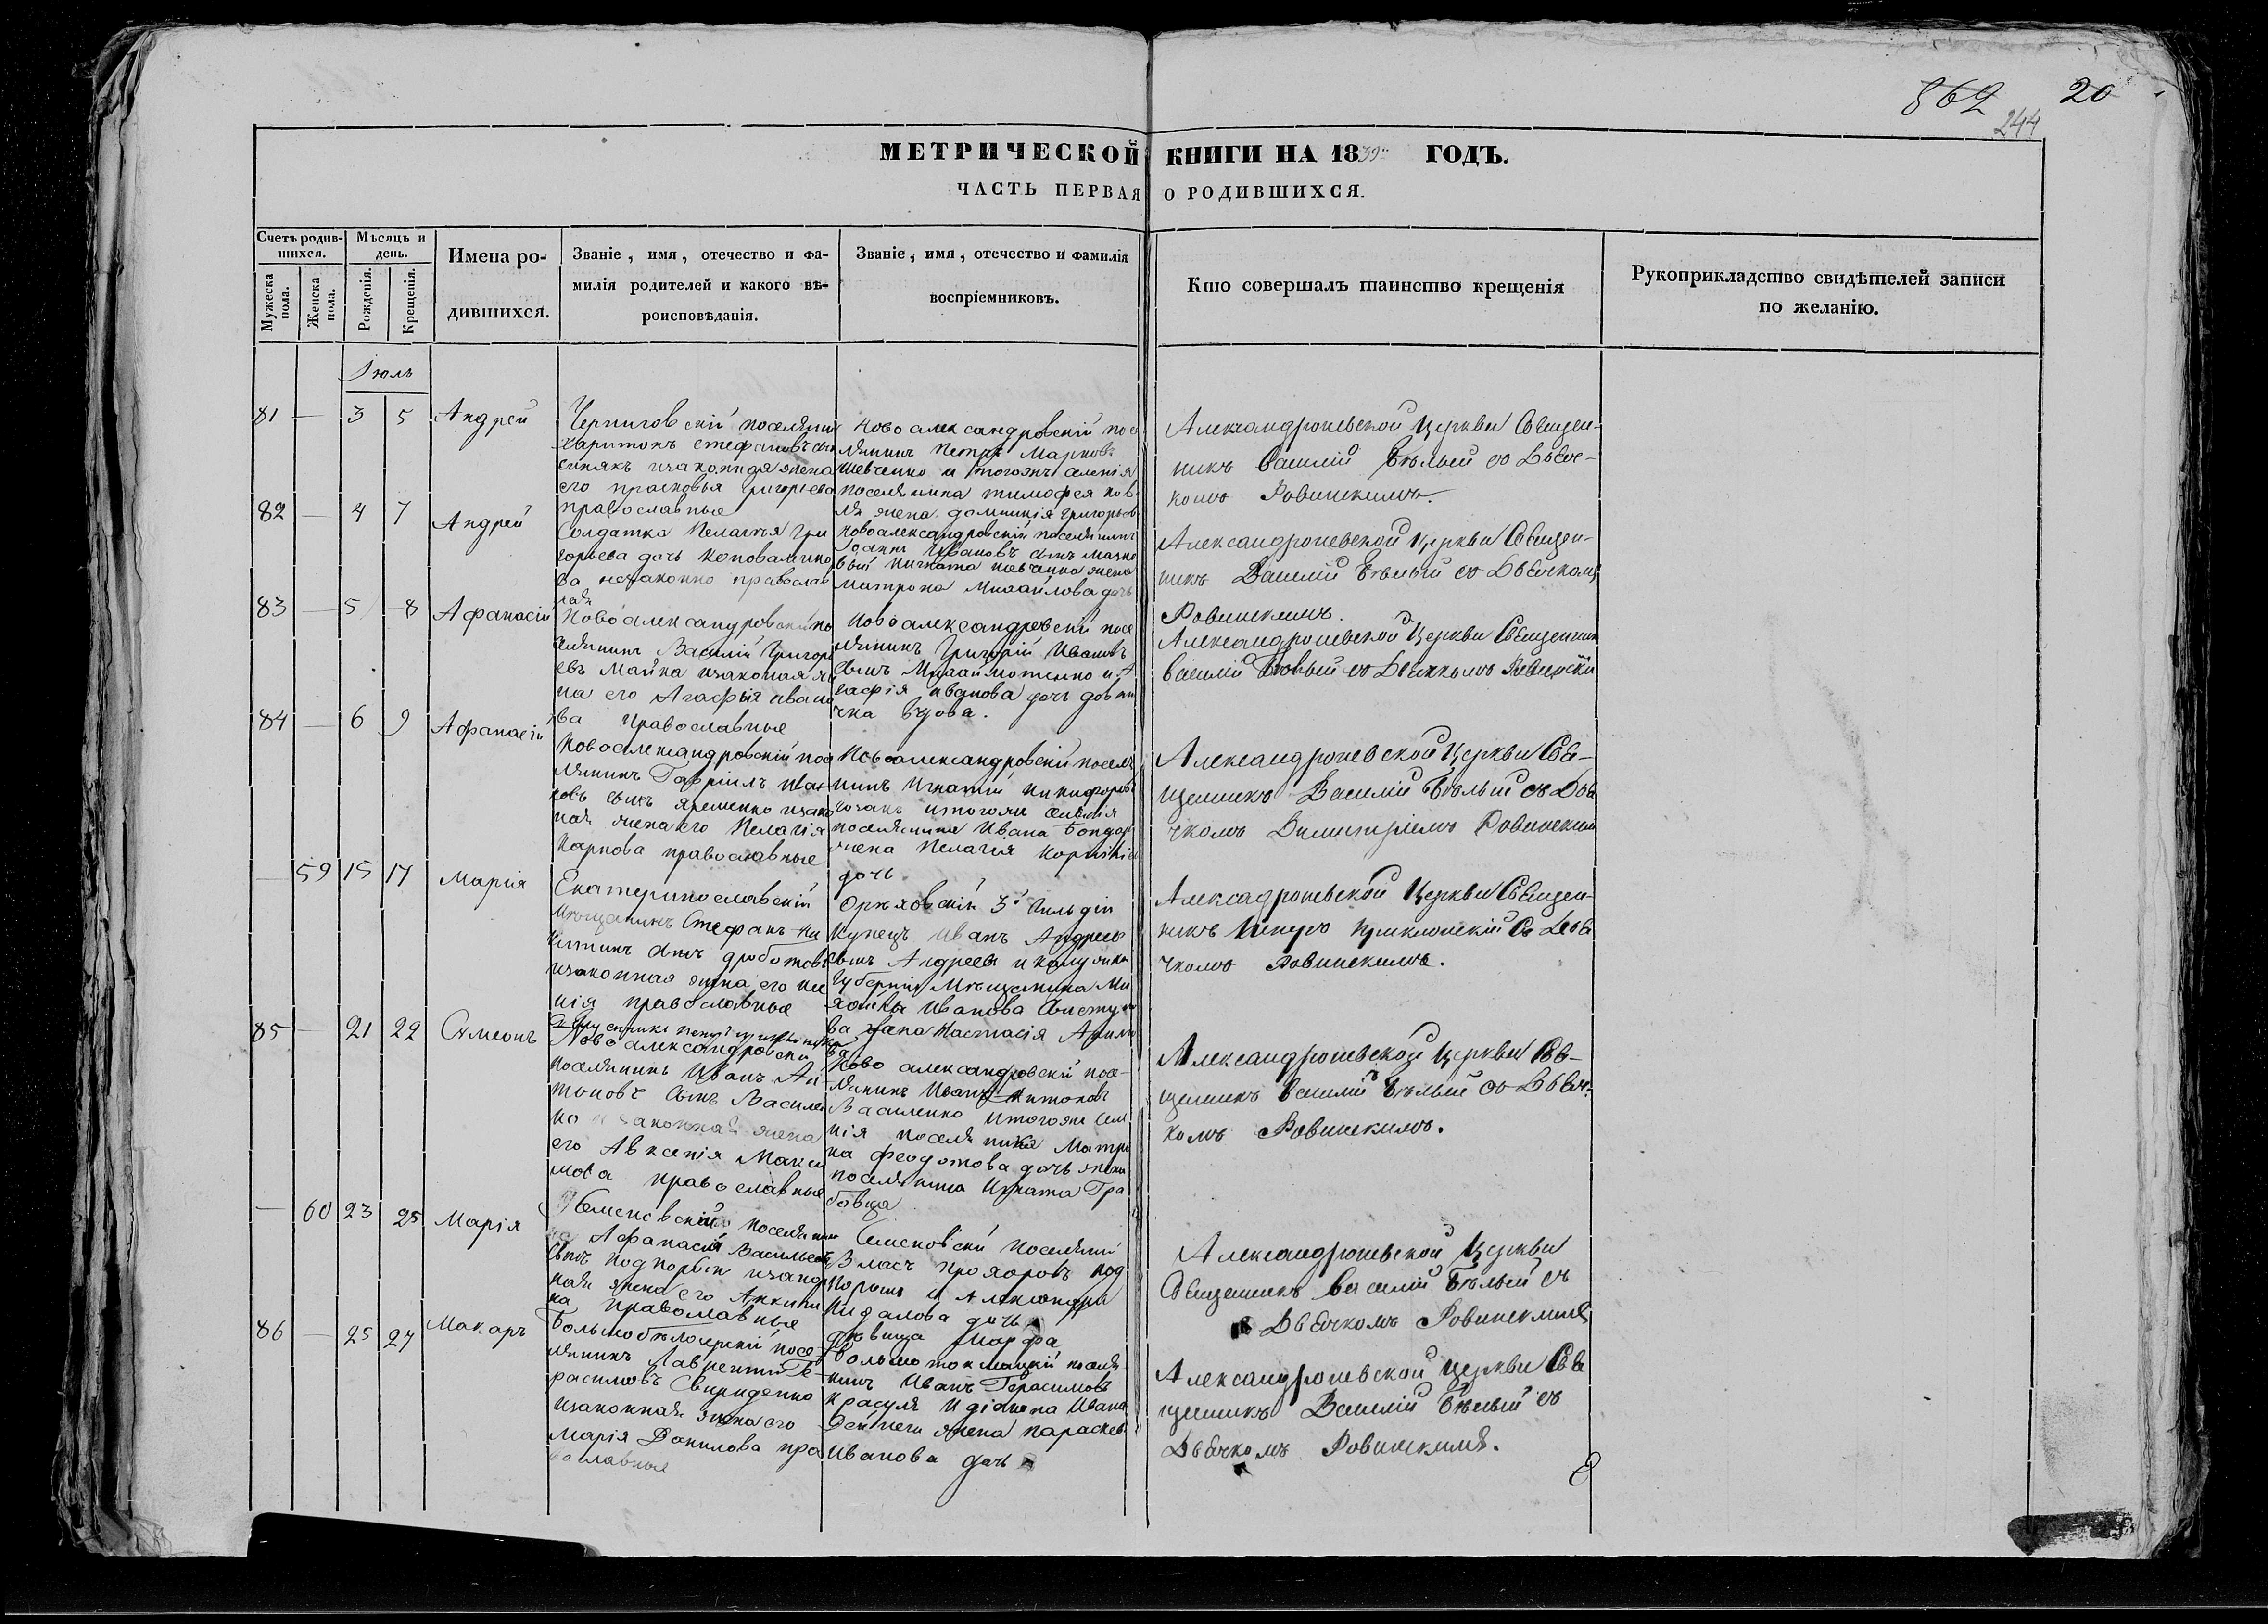 862 20
244
МЕТРИЧЕСКОЙ КНИГИ НА 1839 ГОДЪ.
ЧАСТЬ ПЕРВАЯ О РОДИВШИХСЯ.
Счетъ родив-
шихся.
Мужеска пола.
Женска пола.
Мѣсяцъ и
день.
Рожденія.
Крещенія.
Имена ро-
дившихся.
Званіе, имя, отечество и фа-
милія родителей и какого вѣ-
роисповѣданія.
Званіе, имя, отечество и фамилія
воспріемниковъ.
Кто совершалъ таинство крещенія
Рукоприкладство свидѣтелей записи
по желанію.
Іюль
81 — 3 5 Андрей
Черниговскій поселянин
Харитонъ Стефановъ сын
Синякъ изаконная жена
его Прасковья Григорьева
православные
Новоалександровскій посе
лянинъ Петръ Марковъ
Шевченко и тогожъ селенія
поселянина Тимофея Ков
ля жена Домникія Григорьев
Александроневской Церкви Священ-
никъ Василій Бѣлый со Дьяч-
комъ Ровинскимъ.
82 — 4 7 Андрей
Солдатка Пелагія Гри
горьева дочь Коновалико
ва незаконно православ
ная
Новоалександровскій поселянинъ
Іоаннъ Ивановъ сынъ
Игната Шевченка жена
Матрона Михайлова дочь
Александроневской Церкви Священ-
никъ Василій Бѣлый со Дьячкомъ
Ровинскимъ.
83 — 5 8 Афанасій
Новоалександровскій по
селянинъ Василій Григорь
евъ Майка изаконая же
на его Агафія Ивано
ва православные
Новоалександровскій посе
лянинъ Григорій Ивановъ
сынъ и А
гафія Иванова дочь
вдова.
Александроневской Церкви Священник
Василій Бѣлый со Дьячкомъ Ровински
84 — 6 9 Афанасій
Новоалександровскій посе
лянинъ Гавріилъ Иван
новъ сынъ Яременко изакон
ная жена его Пелагія
Карпова православные
Новоалександровскій поселя
нинъ Игнатій Никифоровъ
Козакъ итогоже селенія
поселянина Ивана Бондар
жена Пелагія Корнѣіев
дочь
Александроневской Церкви Свя-
щенникъ Василій Бѣлый съ Дья
чкомъ Димитріемъ Ровинским
— 59 15 17 Марія
Екатеринославскій
Мѣщанинъ Стефанъ Ни
китинъ сынъ
изаконная жена его
православные
Орѣховскій 3й Гильдіи
Купецъ Иванъ Андреев
сынъ Андреевъ и
Губерніи Мѣщанина Ми
хайлы Иванова
ва жена Настасія
ва
Алексадроневской Церкви Священ-
никъ Петръ съ Дья
чкомъ Ровинскимъ.
85 — 21 22 Симеонъ
Новоалександровскій
поселянинъ Иванъ Ан-
тоновъ сынъ Василен
ко изаконная жена
его Авксенія Макси
мова православные
Ново александровскій посе-
лянинъ Иванъ Антоновъ
Василенко итогоже селе
нія поселянина Матро
на Феодотова дочь жена
поселянина Игната Гра
бовца
Александроневской Церкви Свя-
щенникъ Василій Бѣлый со Дьяч-
комъ Ровинскимъ.
— 60 23 25 Марія
Семеновскій поселянин
Афанасій Васильевъ
сынъ Подпорын изакон
ная жена его Акили
на православные
Семеновскій поселянин
Власъ Прохоровъ Под
порынъ и Александра
дочь
дѣвица Марфа
Александроневской Церкви
Священникъ Василій Бѣлый съ
Дьячкомъ Ровинскимъ
86 — 25 27 Макаръ
Большобѣлозерскій посе-
лянинъ Лаврентій Ге-
расимовъ Свириденко
изаконная жена его
Марія Данилова пра
вославные
Большотокмацкій поселя
нинъ Иванъ Герасимовъ
Красуля Ивана
Дейнеги жена Параскев
Иванова дочь
Александроневской Церкви Свя
щенникъ Василій Бѣлый съ
Дьячкомъ Ровинскимъ.